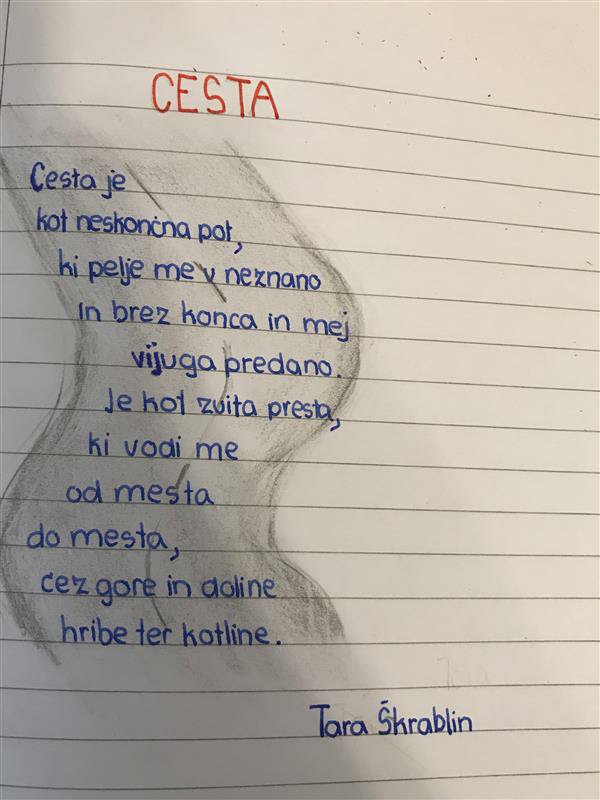 CESTA
Cesta je
kot neskončna pot,
ki pelje me v neznano
in brez konca in mej
vijuga predano.
Je kot zvita presta,
ki vodi me
od mesta
do mesta,
čez gore in doline
hribe ter kotline.
Tara Škrablin